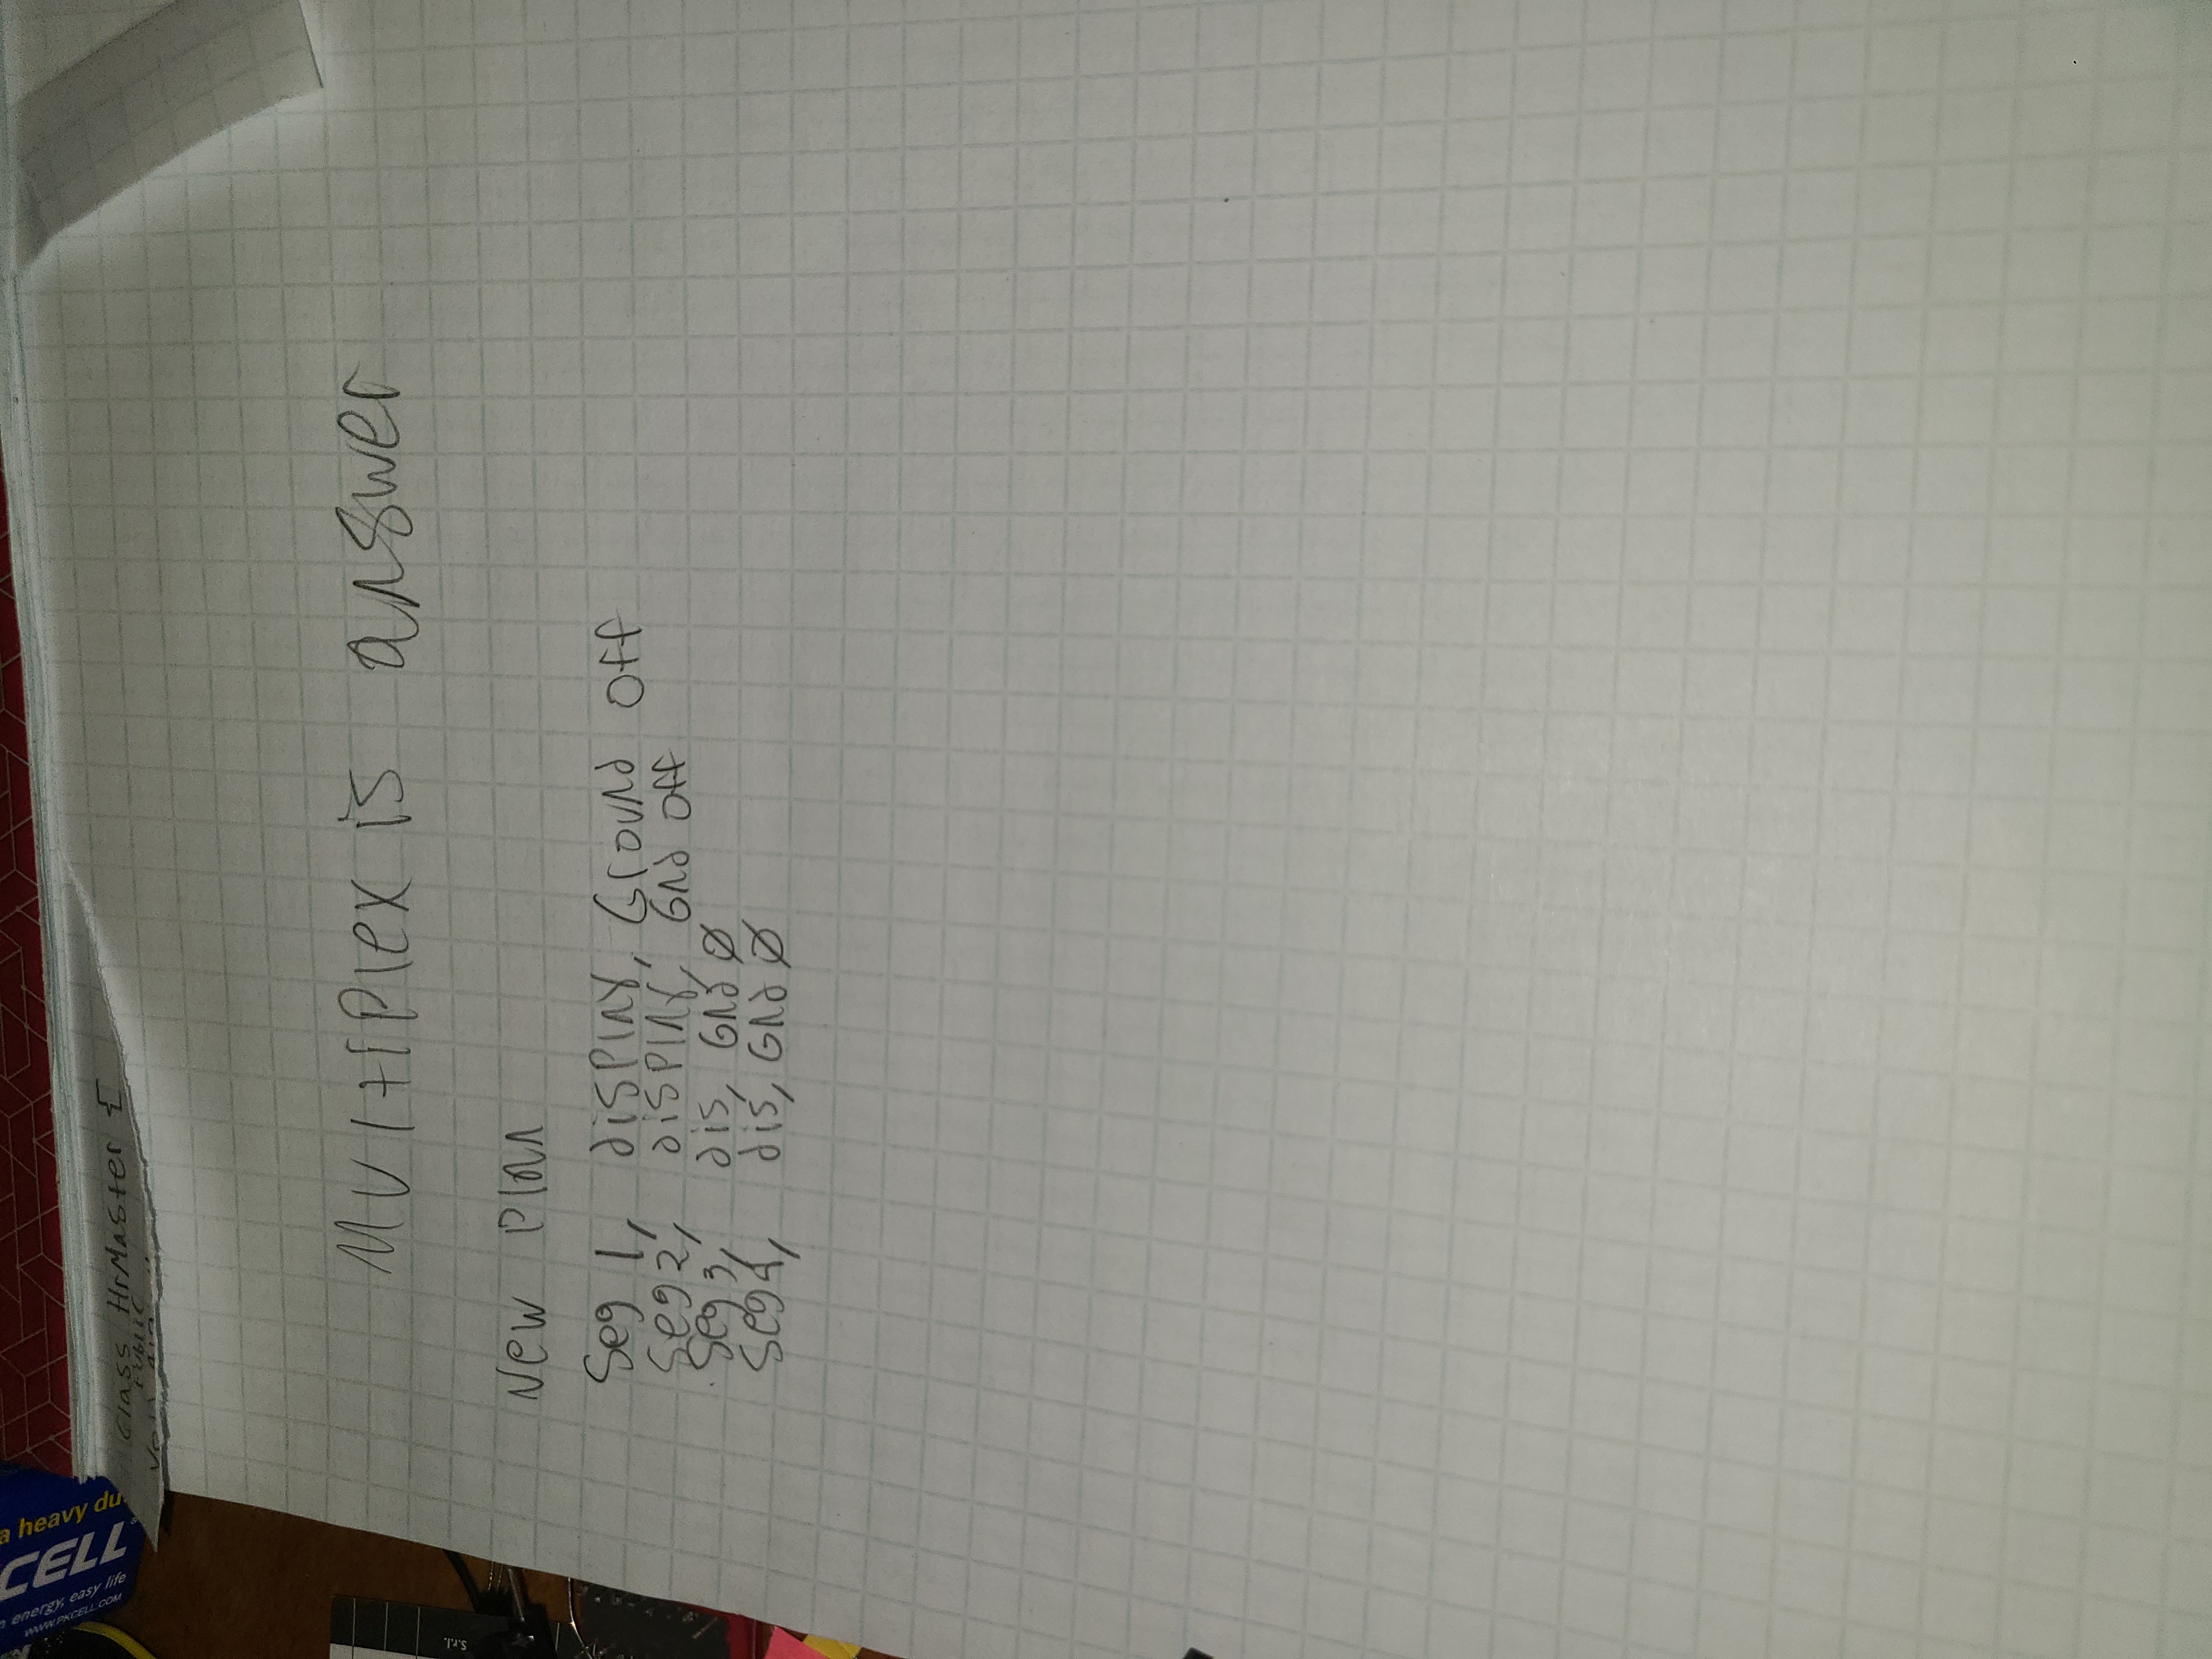 a heavy du
CELL
energy, easy life
www.PKCELL.COM
Class HrMaster {
Public
S.r.l.
MultiPlex is answer
New Plan
Seg 1, disPlay, Ground off
Seg 2, disPlay, Gnd off
Seg 3, dis, Gnd Ø
Seg 4, dis, Gnd Ø